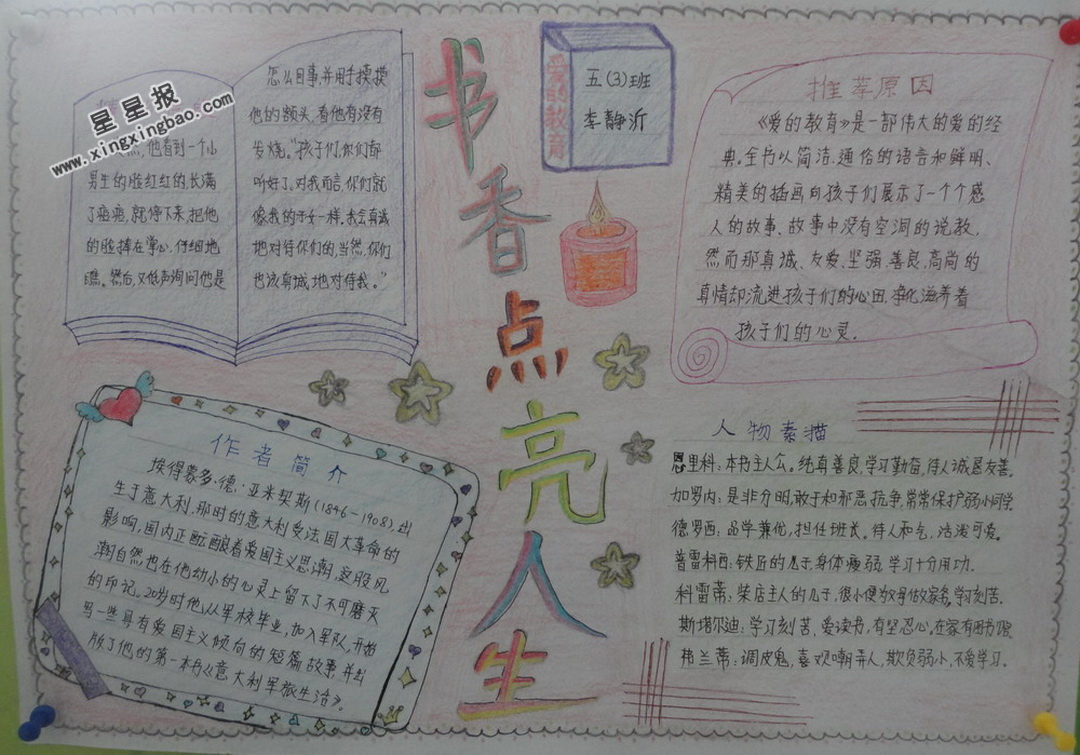 星星报
www.xingxingbao.com
他看到一个小
男生的脸红红的,长满
了疙瘩,就停下来,把他
的脸捧在掌心,仔细地
瞧。然后,又低声询问他是
怎么回事,并用手摸摸
他的额头,看他有没有
发烧。“孩子们,你们都
听好了。对我而言,你们就
像我的子女一样。我会真诚
地对待你们的,当然,你们
也该真诚地对待我。”
书香点亮人生
爱的教育
五(3)班
李静沂
推荐原因
《爱的教育》是一部伟大的爱的经
典。全书以简洁、通俗的语言和鲜明、
精美的插画向孩子们展示了一个个感
人的故事、故事中没有空洞的说教,
然而那真诚、友爱、坚强、善良、高尚的
真情却流进孩子们的心田,净化滋养着
孩子们的心灵。
作者简介
埃得蒙多·德·亚米契斯(1846-1908),出
生于意大利,那时的意大利受法国大革命的
影响,国内正酝酿着爱国主义思潮,这股风
潮自然也在他幼小的心灵上留下了不可磨灭
的印记。20岁时他从军校毕业,加入军队,开始
写一些具有爱国主义倾向的短篇故事,并出
版了他的第一本书《意大利军旅生活》。
人物素描
恩里科:本书主人公。纯真善良,学习勤奋,待人诚恳友善。
加罗内:是非分明,敢于和邪恶抗争,常常保护弱小同学.
德罗西:品学兼优,担任班长。待人和气,活泼可爱。
普雷科西:铁匠的儿子,身体瘦弱,学习十分用功.
科雷蒂:柴店主人的儿子,很小便教导做家务,学习刻苦.
斯塔尔迪:学习刻苦,爱读书,有坚忍心,在家有图书馆
弗兰蒂:调皮鬼,喜欢嘲弄人,欺负弱小,不爱学习.